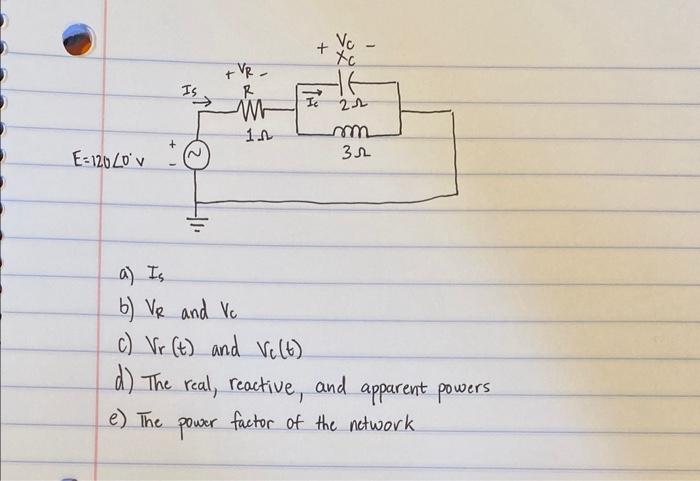 + Vc -
Xc
+ VR -
Is R Ic 2Ω
1Ω
3Ω
+
E=120∠0° V
-
a) Is
b) VR and Vc
c) Vr(t) and Vc(t)
d) The real, reactive, and apparent powers
e) The power factor of the network